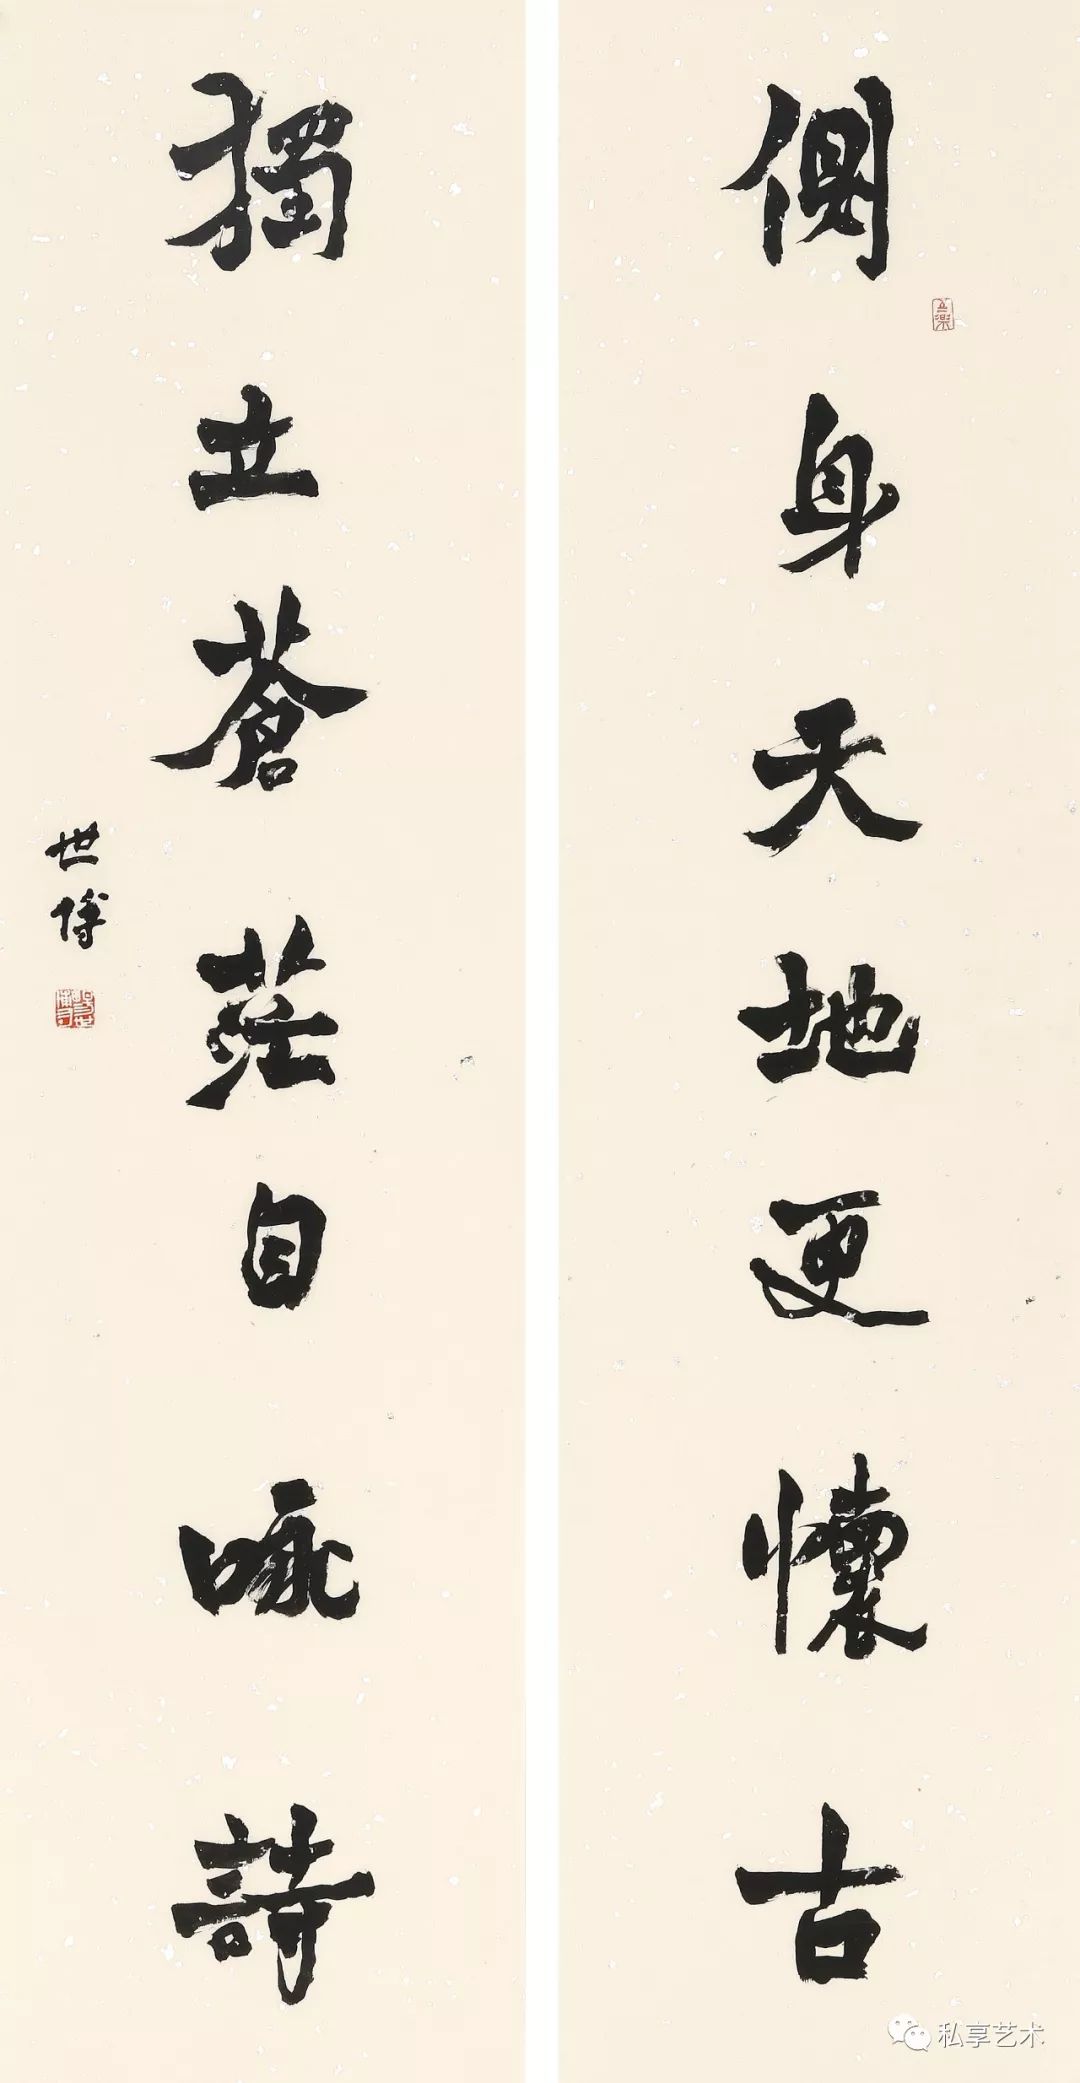 側身天地更懷古
獨立蒼茫自咏詩
世博
私享艺术